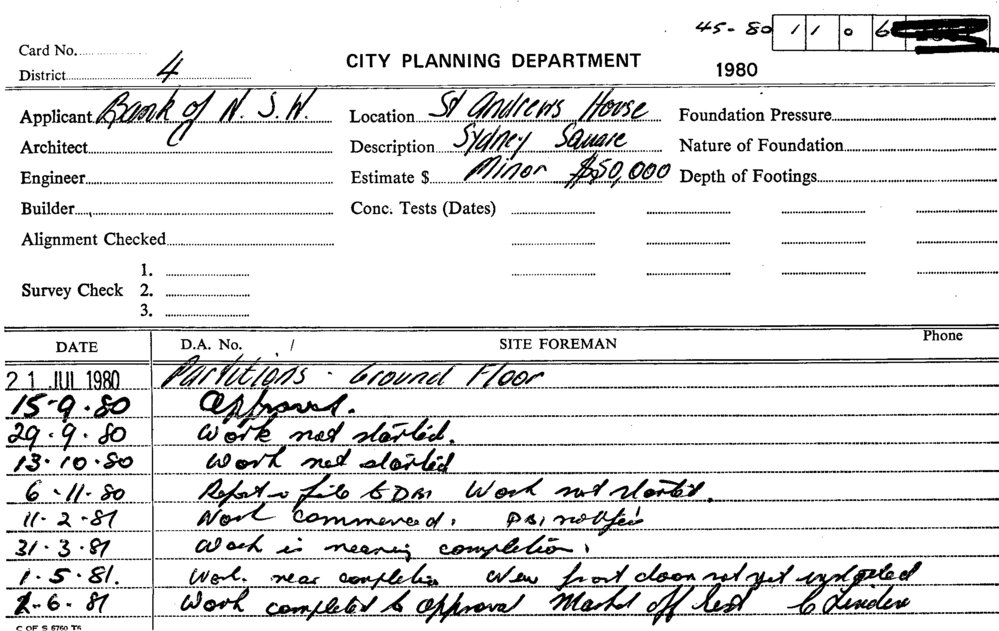 45-80 1106
Card No.
CITY PLANNING DEPARTMENT
District 4
1980
Applicant Bank of N.S.W. Location St Andrews House Foundation Pressure
Architect Description Sydney Square Nature of Foundation
Engineer Estimate $ Minor $50,000 Depth of Footings
Builder Conc. Tests (Dates)
Alignment Checked
1.
Survey Check 2.
3.
DATE D.A. No. / SITE FOREMAN Phone
21 JUL 1980 Partitions - Ground Floor
15-9-80 Approved.
29-9-80 Work not started.
13-10-80 Work not started
6-11-80 Report & file to DBI Work not started.
11-2-81 Work commenced. DBI notified
31-3-81 Work is nearing completion.
1-5-81. Work near completion New front door not yet installed
2-6-81 Work completed to approval Marked off
C OF S 6760 T6